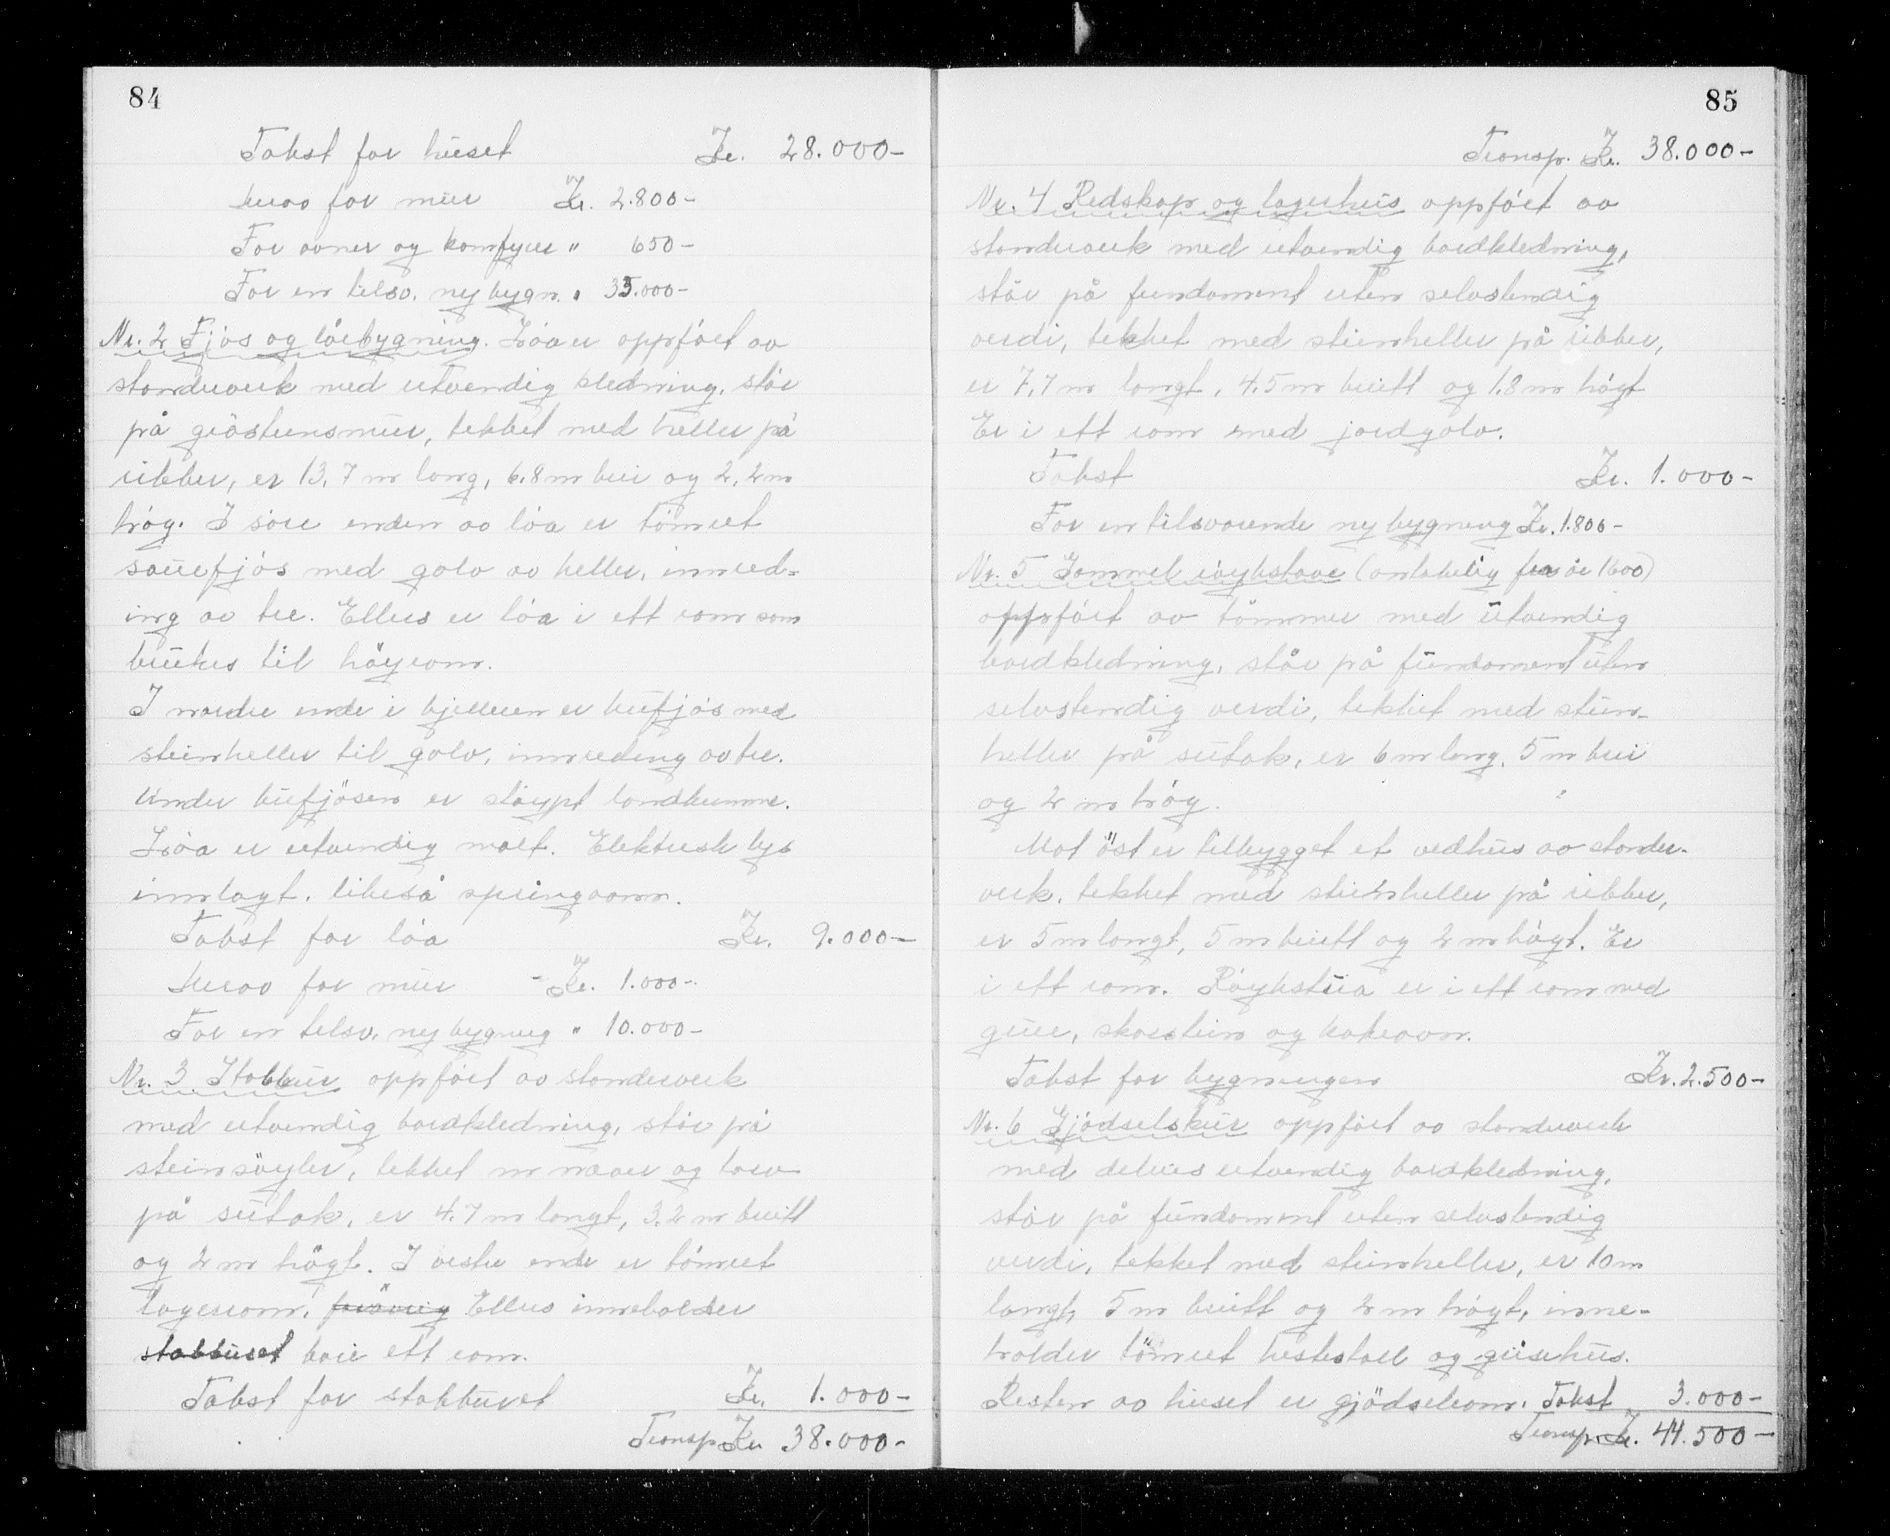 84
Takst for huset Kr. 28.000-
Herav for mur Kr. 2.800-
For ovner og komfyrer " 650-
For en tilsv. ny bygn. " 35.000-
Nr. 2 Fjøs og løebygning. Løa er oppført av
standerverk med utvendig kledning, står
på gråsteinsmur, tekket med heller på
ribber, er 13,7 m lang, 6,8 m brei og 2,2 m
høg. I søre enden av løa er tømret
sauefjøs med golv av heller, innred-
ing av tre. Ellers er løa i ett rom som
brukes til høyrom.
I nordre ende i kjelleren er kufjøs med
steinheller til golv, innreding av tre.
Under kufjøsen er støypt landkumme.
Løa er utvendig malt. Elektrisk lys
innlagt, likeså springvann.
Takst for løa Kr. 9.000-
Herav for mur - Kr. 1.000-
For en tilsv. ny bygning " 10.000-
Nr. 3 Stabbur oppført av standerverk
med utvendig bordkledning, står på
steinsøyler, tekket m never og torv
på sutak, er 4,7 m langt, 3,2 m breitt
og 2 m høgt. I vestre ende er tømret
lagerrom, forøvrig Ellers inneholder
stabburet bare ett rom.
Takst for stabburet Kr. 1.000-
Transp. Kr. 38.000-
85
Transp. Kr. 38.000-
Nr. 4 Redskap og lagerhus oppført av
standerverk med utvendig bordkledning,
står på fundament uten selvstendig
verdi, tekket med steinheller på ribber,
er 7,7 m langt, 4,5 m breitt og 1,8 m høgt
Er i ett rom med jordgolv.
Takst Kr. 1.000-
For en tilsvarende ny bygning Kr. 1.800-
Nr. 5 Gammel røykstove (antakelig fra år 1600)
oppført av tømmer med utvendig
bordkledning, står på fundament uten
selvstendig verdi, tekket med stein-
heller på sutak, er 6 m lang, 5 m brei
og 2 m høg.
Mot øst er tilbygget et vedhus av stander-
verk, tekket med steinheller på ribber,
er 5 m langt, 5 m breitt og 2 m høgt. Er
i ett rom. Røykstua er i ett rom med
grue, skorstein og kakeovn.
Takst for bygningen Kr. 2.500-
Nr. 6 Gjødselskur oppført av standerverk
med delvis utvendig bordkledning,
står på fundament uten selvstendig
verdi, tekket med steinheller, er 10 m
langt, 5 m breitt og 2 m høgt, inne-
holder tømret hestestall og grisehus.
Resten av huset er gjødselrom. Takst 3.000-
Transp. Kr. 44.500-